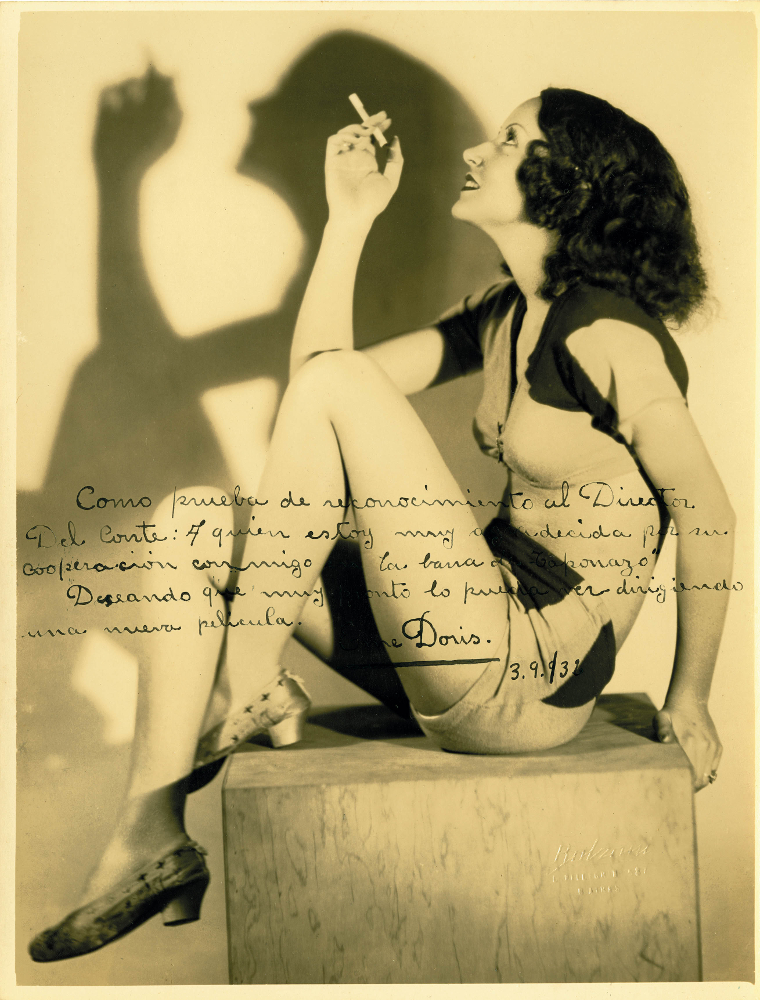 Como prueba de reconocimiento al Director
Del Conte: A quien estoy muy agradecida por su
cooperación conmigo la bana de Taponazo
Deseando que muy pronto lo pueda ver dirigiendo
una nueva pelicula.
Doris.
3.9.932